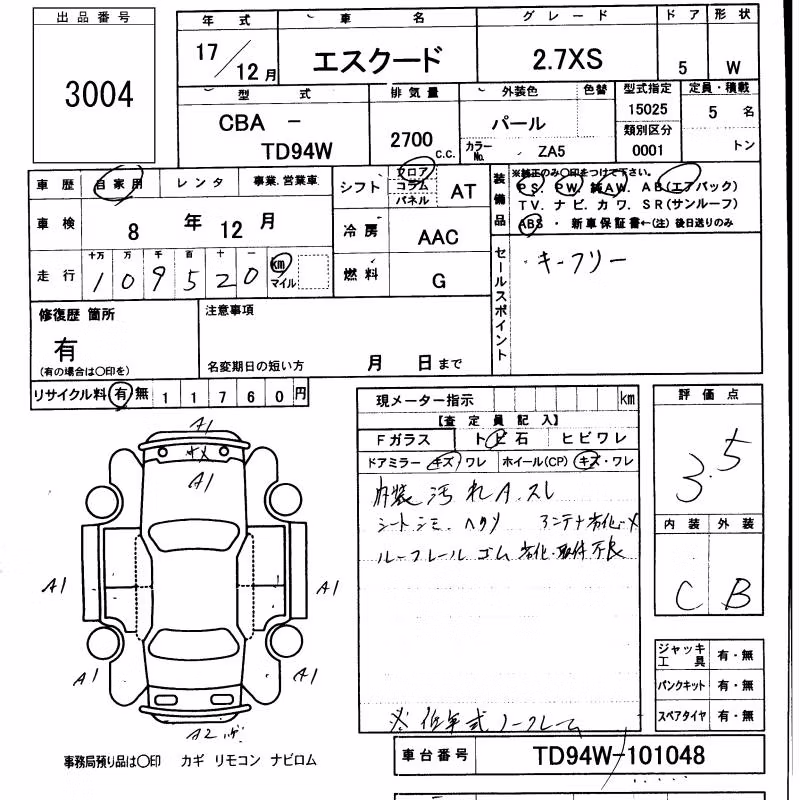 出品番号
3004
年式 車名 グレード ドア 形状
17/12月 エスクード 2.7XS 5 W
型式 排気量 外装色 色替 型式指定 定員・積載
CBA - TD94W
2700 c.c.
パール
カラーNo. ZA5
15025
類別区分
0001
5 名
トン
車歴 自家用 レンタ 事業.営業車
車検 8年 12月
走行 十万 万 千 百 十 一
1 0 9 5 2 0 km マイル
シフト フロア コラム パネル AT
冷房 AAC
燃料 G
装備品
※純正のみ○印をつけて下さい。
PS. PW. 純AW. AB(エアバック)
TV. ナビ. カワ. SR(サンルーフ)
ABS ・ 新車保証書←(注) 後日送りのみ
セールスポイント
・キーフリー
修復歴 箇所
有
(有の場合は○印を)
注意事項
名変期日の短い方 月 日まで
リサイクル料 有 無 11760円
現メーター指示 km
【査定員記入】
Fガラス トビ石 ヒビワレ
ドアミラー キズ・ワレ ホイール(CP) キズ・ワレ
内装 汚れ A.スレ
シートシミ. ヘタリ アンテナ劣化
ルーフレール ゴム 劣化・取付不良
※ 低年式ノークレーム
評価点
3.5
内装 外装
C B
ジャッキ工具 有・無
パンクキット 有・無
スペアタイヤ 有・無
A1
A1
A1 A1
A1 A1
A2
事務局預り品は○印 カギ リモコン ナビロム
車台番号 TD94W-101048